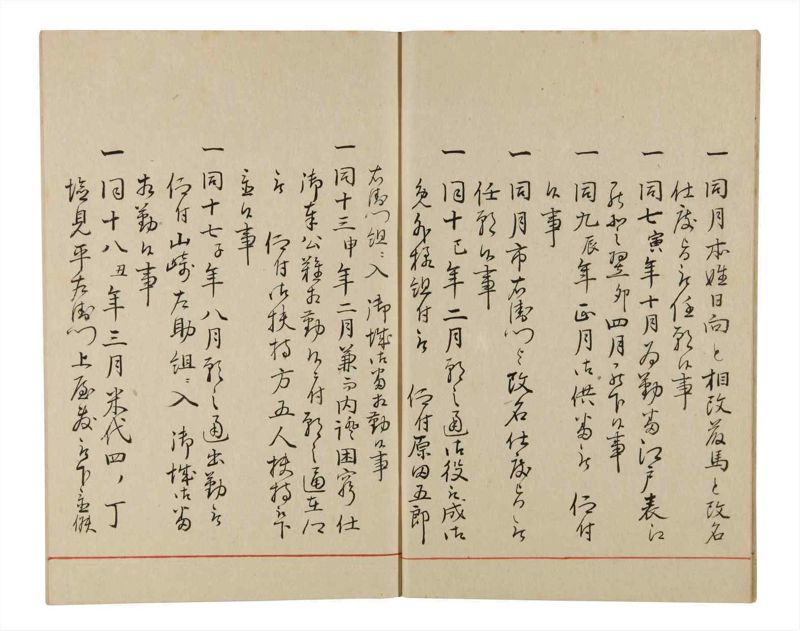 一同月本姓日向と相改蔵馬と改名
仕度旨被任願候事
一同七寅年十月為勤番江戸表江
罷登翌卯四月罷下候事
一同九辰年正月御供番被 仰付
候事
一同月市右衛門と改名仕度旨被
任願候事
一同十巳年二月願之通御役被成御
免外様組付被 仰付原田五郎
右衛門組ニ入 御城御番相勤候事
一同十三申年二月兼而内證困窮仕
御奉公難相勤候付願之通在江
被 仰付御扶持方五人扶持被下
置候事
一同十七子年八月願之通出勤被
仰付山崎左助組ニ入 御城御番
相勤候事
一同十八丑年三月米代四ノ丁
塩見平右衛門上屋敷被下置候